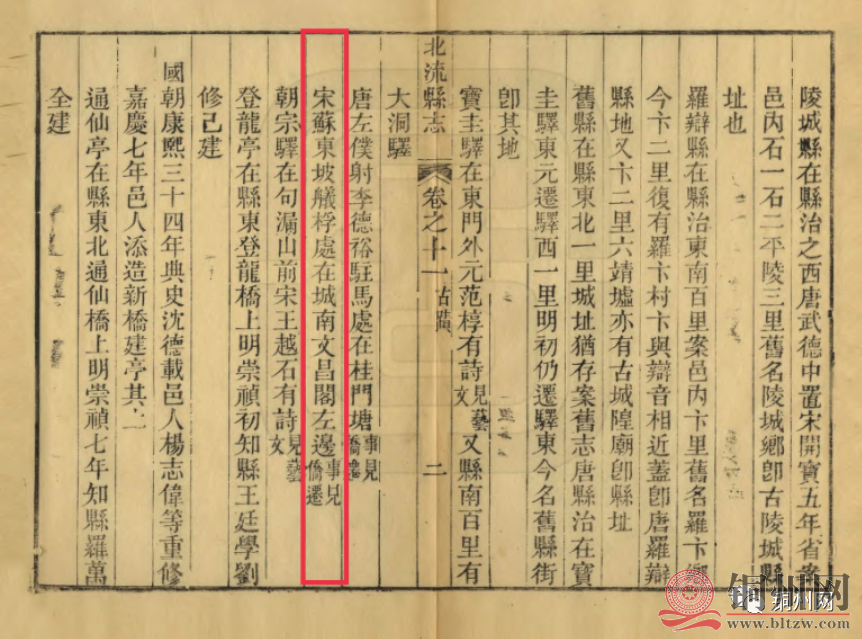 陵城縣在縣治之西唐武德中置宋開寶五年省案
邑內石一石二平陵三里舊名陵城鄉卽古陵城縣
址也
羅辯縣在縣治東南百里案邑內卞里舊名羅卞鄉
今卞二里復有羅卞村卞與辯音相近蓋卽唐羅辯
縣地又卞二里六靖墟亦有古城隍廟卽縣址
舊縣在縣東北一里城址猶存案舊志唐縣治在寶
圭驛東元遷驛西一里明初仍遷驛東今名舊縣街
卽其地
寶圭驛在東門外元范梈有詩見藝文又縣南百里有
北流縣志 卷之十一 古蹟 二
大洞驛
唐左僕射李德裕駐馬處在桂門塘事見僑
宋蘇東坡艤桴處在城南文昌閣左邊事見僑遷
朝宗驛在句漏山前宋王越石有詩見藝文
登龍亭在縣東登龍橋上明崇禎初知縣王廷學劉
修己建
國朝康熙三十四年典史沈德載邑人楊志偉等重修
嘉慶七年邑人添造新橋建亭其上
通仙亭在縣東北通仙橋上明崇禎七年知縣羅萬
全建
铜州网
www.bltzw.com
铜州网